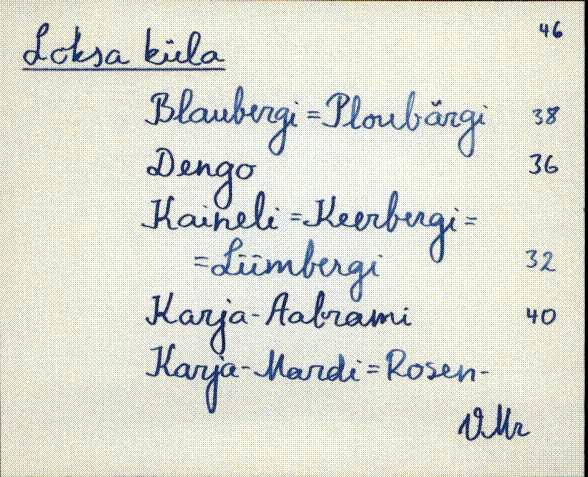 46
Loksa küla
Blaubergi = Ploubärgi 38
Dengo 36
Kaineli = Keerbergi =
= Liimbergi 32
Karja-Aabrami 40
Karja-Mardi = Rosen-
VMr